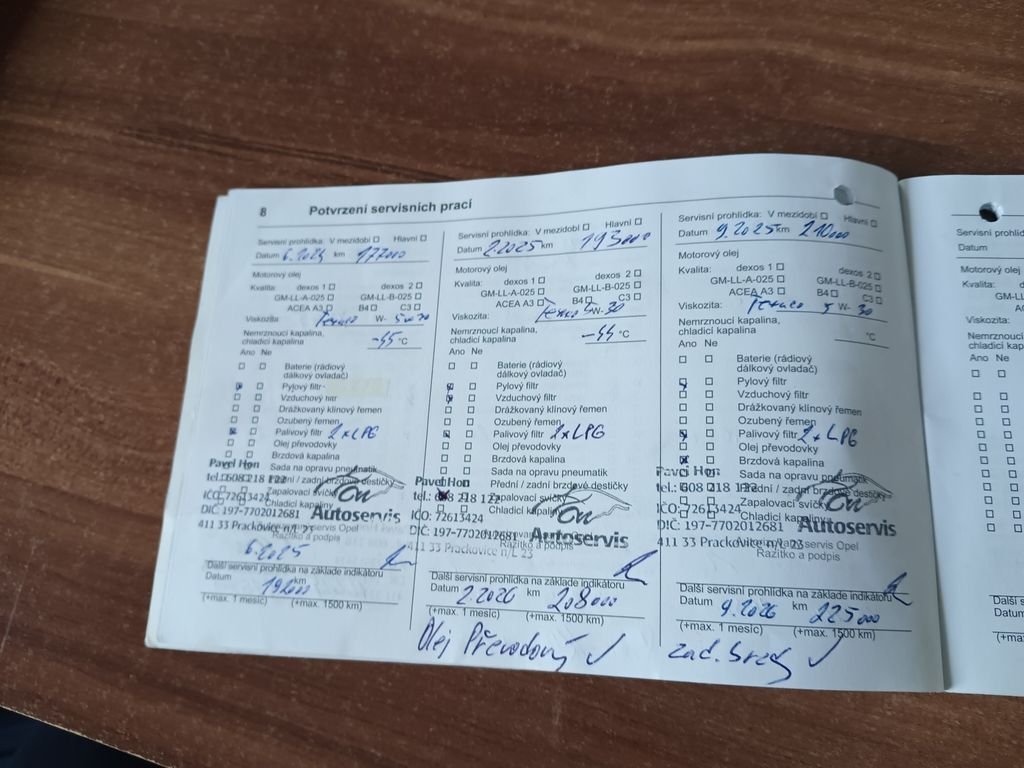 8 Potvrzení servisních prací
Servisní prohlídka: V mezidobí Hlavní
Datum 6.2024 km 177000
Motorový olej
Kvalita: dexos 1 dexos 2
GM-LL-A-025 GM-LL-B-025
ACEA A3 B4 C3
Viskozita: Texaco W- 5w30
Nemrznoucí kapalina,
chladicí kapalina -45 °C
Ano Ne
Baterie (rádiový
dálkový ovladač)
Pylový filtr
Vzduchový filtr
Drážkovaný klínový řemen
Ozubený řemen
Palivový filtr 2xLPG
Olej převodovky
Brzdová kapalina
Sada na opravu pneumatik
Přední / zadní brzdové destičky
Zapalovací svíčky
Chladicí kapaliny
Pavel Hon
tel.: 608 218 122
IČO: 72613424
DIČ: 197-7702012681
411 33 Prackovice n/L 23
Autoservis
Autorizovaný servis Opel
Razítko a podpis
6.2025
Další servisní prohlídka na základe indikátoru
Datum km
192000
(+max. 1 mesíc) (+max. 1500 km)
Servisní prohlídka: V mezidobí Hlavní
Datum 2.2025 km 193000
Motorový olej
Kvalita: dexos 1 dexos 2
GM-LL-A-025 GM-LL-B-025
ACEA A3 B4 C3
Viskozita: Texaco 5W-30
Nemrznoucí kapalina,
chladicí kapalina -44 °C
Ano Ne
Baterie (rádiový
dálkový ovladač)
Pylový filtr
Vzduchový filtr
Drážkovaný klínový řemen
Ozubený řemen
Palivový filtr 2xLPG
Olej převodovky
Brzdová kapalina
Sada na opravu pneumatik
Přední / zadní brzdové destičky
Zapalovací svíčky
Chladicí kapaliny
Pavel Hon
tel.: 608 218 122
IČO: 72613424
DIČ: 197-7702012681
411 33 Prackovice n/L 23
Autoservis
Razítko a podpis
Další servisní prohlídka na základe indikátoru
Datum 2.2026 km 208000
(+max. 1 mesíc) (+max. 1500 km)
Olej Převodový ✓
Servisní prohlídka: V mezidobí Hlavní
Datum 9.2025 km 210000
Motorový olej
Kvalita: dexos 1 dexos 2
GM-LL-A-025 GM-LL-B-025
ACEA A3 B4 C3
Viskozita: Texaco 5 W- 30
Nemrznoucí kapalina,
chladicí kapalina °C
Ano Ne
Baterie (rádiový
dálkový ovladač)
Pylový filtr
Vzduchový filtr
Drážkovaný klínový řemen
Ozubený řemen
Palivový filtr 2xLPG
Olej převodovky
Brzdová kapalina
Sada na opravu pneumatik
Přední / zadní brzdové destičky
Zapalovací svíčky
Chladicí kapaliny
Pavel Hon
tel.: 608 218 122
IČO: 72613424
DIČ: 197-7702012681
411 33 Prackovice n/L 23
Autoservis
Autorizovaný servis Opel
Razítko a podpis
Další servisní prohlídka na základe indikátoru
Datum 9.2026 km 225000
(+max. 1 mesíc) (+max. 1500 km)
zad. brzdy ✓
Servisní prohl
Datum
Motorový olej
Kvalita:
GM-LL
AC
Viskozita:
Nemrznoucí kap
chladicí kapalina
Ano Ne
Další s
Datum
(+ma